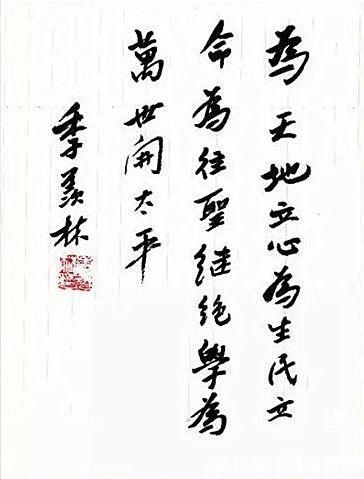 為天地立心為生民立
命為往聖继絶學為
萬世開太平
季羨林